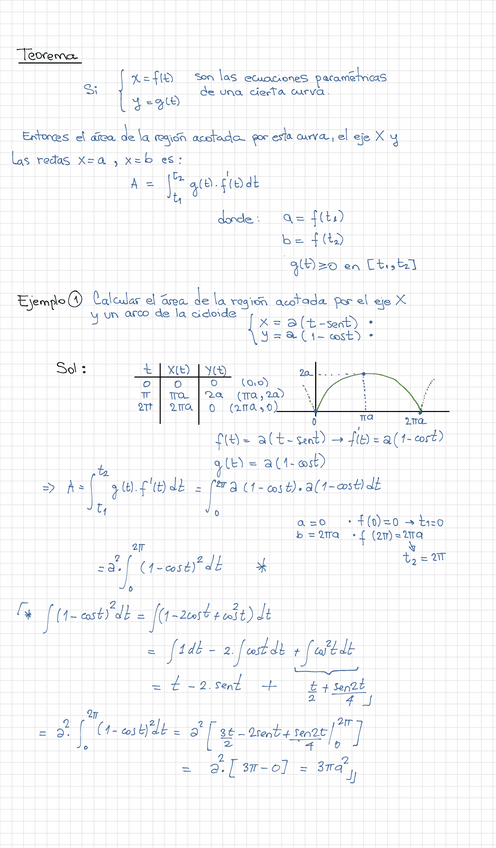 Teorema
Si { x = f(t) son las ecuaciones paramétricas
y = g(t) de una cierta curva.
Entonces el área de la región acotada por esta curva, el eje X y
las rectas x=a , x=b es:
A = ∫_{t₁}^{t₂} g(t). f'(t) dt
donde: a = f(t₁)
b = f(t₂)
g(t) ≥ 0 en [t₁, t₂]
Ejemplo ① Calcular el área de la región acotada por el eje X
y un arco de la cicloide { x = a (t - sent) •
y = a (1 - cost) •
Sol:
t | X(t) | Y(t)
0 | 0 | 0 (0,0)
π | πa | 2a (πa, 2a)
2π | 2πa | 0 (2πa, 0)
2a
0 πa 2πa
f(t) = a(t - sent) → f'(t) = a(1 - cost)
g(t) = a(1 - cost)
⇒ A = ∫_{t₁}^{t₂} g(t). f'(t) dt = ∫_0^{2π} a (1 - cost) • a (1 - cost) dt
a = 0 • f(0) = 0 → t₁=0
b = 2πa • f (2π) = 2πa
↓
t₂ = 2π
= a². ∫_0^{2π} (1 - cost)² dt *
* ∫ (1 - cost)² dt = ∫(1 - 2cost + cos²t) dt
= ∫ 1 dt - 2. ∫ cost dt + ∫ cos²t dt
= t - 2. sent + t/2 + sen2t/4
= a². ∫_0^{2π} (1 - cost)² dt = a² [ 3t/2 - 2sent + sen2t/4 |_0^{2π} ]
= a². [ 3π - 0 ] = 3πa²